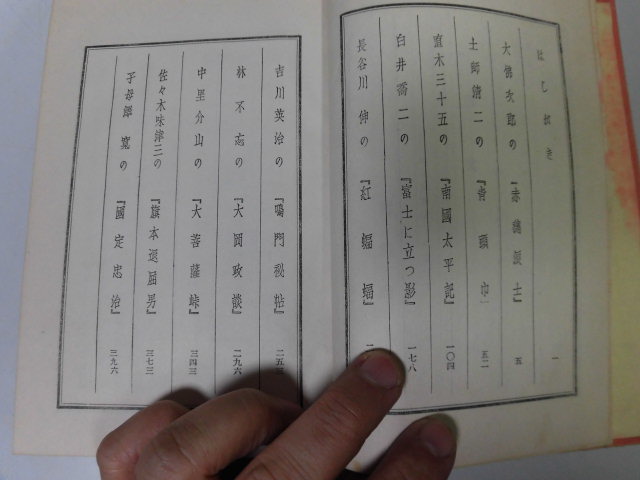 はしがき 一
大佛次郎の『赤穗浪士』 五
土師淸二の『靑頭巾』 五二
直木三十五の『南國太平記』 一〇四
白井喬二の『富士に立つ影』 一七八
長谷川伸の『紅蝙蝠』
吉川英治の『鳴門秘帖』 二五
林不忘の『大岡政談』 二九六
中里介山の『大菩薩峠』 三四三
佐々木味津三の『旗本退屈男』 三七三
子母澤寬の『國定忠治』 三九六